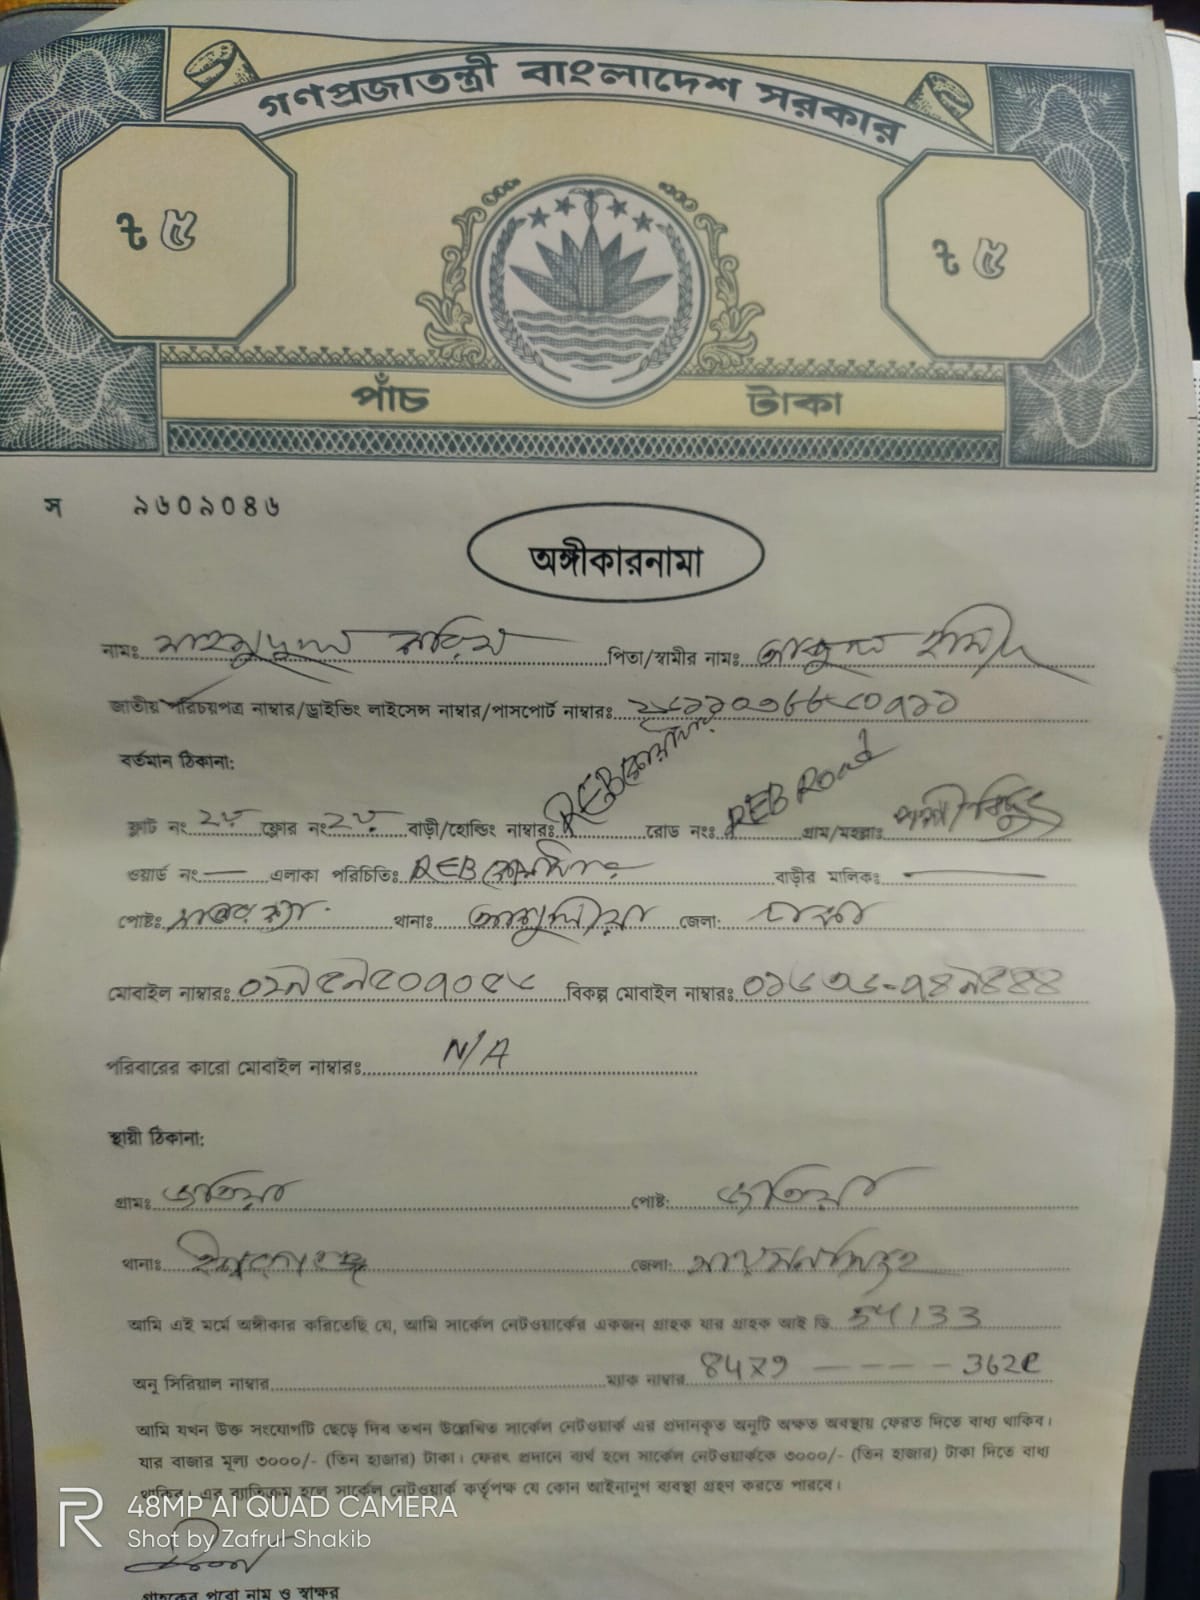 গণপ্রজাতন্ত্রী বাংলাদেশ সরকার
৳ ৫ ৳ ৫
পাঁচ টাকা
স ৯৬০৯০৪৬
অঙ্গীকারনামা
নামঃ মাহমুদুল করিম পিতা/স্বামীর নামঃ আব্দুল হামিদ
জাতীয় পরিচয়পত্র নাম্বার/ড্রাইভিং লাইসেন্স নাম্বার/পাসপোর্ট নাম্বারঃ
বর্তমান ঠিকানা:
ফ্লাট নং ২য় ফ্লোর নং ২য় বাড়ী/হোল্ডিং নাম্বারঃ REB রোড নংঃ REB Road গ্রাম/মহল্লাঃ পল্লী বিদ্যুৎ
ওয়ার্ড নং — এলাকা পরিচিতিঃ REB বাড়ীর মালিকঃ —
পোষ্টঃ থানাঃ আশুলিয়া জেলা: ঢাকা
মোবাইল নাম্বারঃ বিকল্প মোবাইল নাম্বারঃ
পরিবারের কারো মোবাইল নাম্বারঃ N/A
স্থায়ী ঠিকানা:
গ্রামঃ জাতিয়া পোষ্ট: জাতিয়া
থানাঃ ঈশ্বরগঞ্জ জেলা: ময়মনসিংহ
আমি এই মর্মে অঙ্গীকার করিতেছি যে, আমি সার্কেল নেটওয়ার্কের একজন গ্রাহক যার গ্রাহক আই ডি 54133
অনু সিরিয়াল নাম্বার ম্যাক নাম্বার
আমি যখন উক্ত সংযোগটি ছেড়ে দিব তখন উল্লেখিত সার্কেল নেটওয়ার্ক এর প্রদানকৃত অনুটি অক্ষত অবস্থায় ফেরত দিতে বাধ্য থাকিব।
যার বাজার মূল্য ৩০০০/- (তিন হাজার) টাকা। ফেরৎ প্রদানে ব্যর্থ হলে সার্কেল নেটওয়ার্ককে ৩০০০/- (তিন হাজার) টাকা দিতে বাধ্য
থাকিব। এর ব্যতিক্রম হলে সার্কেল নেটওয়ার্ক কর্তৃপক্ষ যে কোন আইনানুগ ব্যবস্থা গ্রহণ করতে পারবে।
48MP AI QUAD CAMERA
Shot by Zafrul Shakib
গ্রাহকের পুরো নাম ও স্বাক্ষর